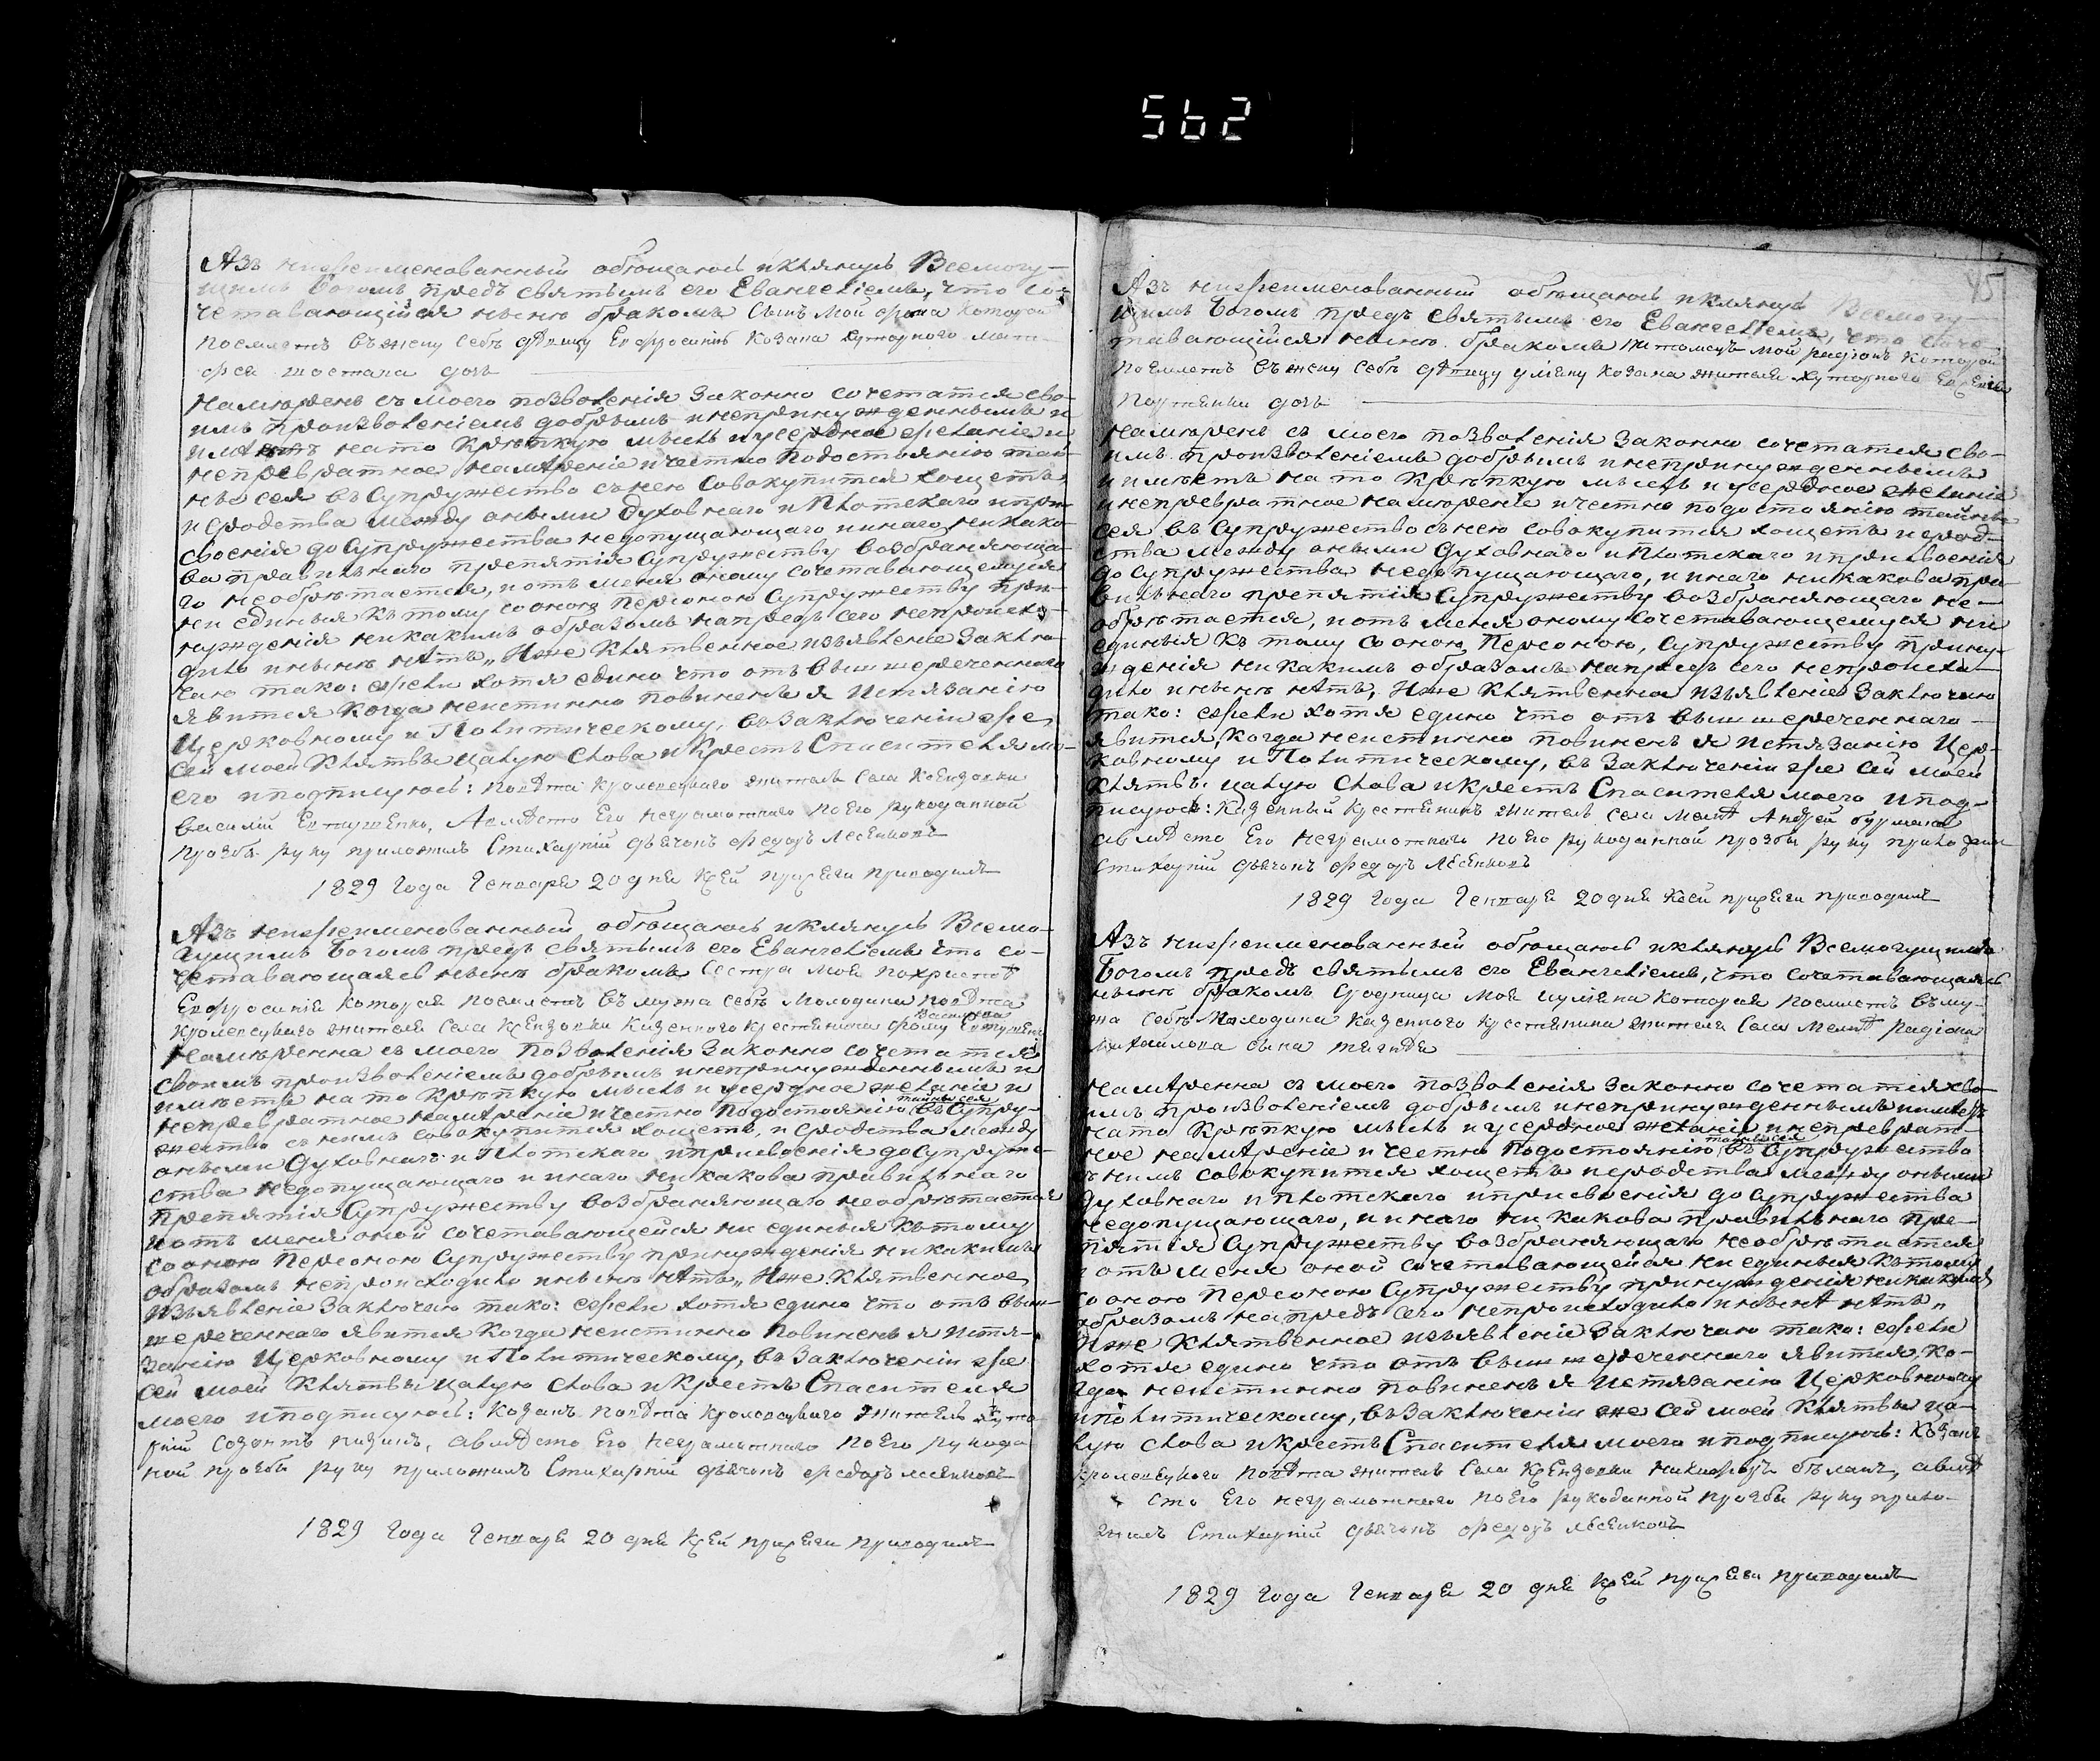 562
Азъ нижеименованный обѣщаюсь и клянусь Всемогу-
щимъ Богомъ предъ святымъ его Евангеліемъ, что со-
четавающійся нынѣ бракомъ сынъ мой Фома которой
поемлетъ въ жену себѣ дѣвицу Евфросинію козака хуторного Мат-
фея дочь
намѣренъ съ моего позволенія законно сочетатися сво-
имъ произволеніемъ добрымъ и непринужденнымъ и
имѣетъ на то крѣпкую мысль и усердное желаніе и
непревратное намѣреніе и честно по достоянію тай-
ны сея въ супружество съ нею совокупится хощетъ,
и сродства между оными духовнаго и плотскаго и при-
своенія до супружества недопущающаго и инаго никако-
ва правильнаго препятія супружеству возбраняюща-
го необрѣтается, и отъ меня оному сочетавающемуся
ни единыя къ тому со оною персоною супружеству при-
нужденія никакимъ образомъ напредъ сего непроисхо-
дило и нынѣ нѣтъ, Иже клятвенное изъявленіе заклю-
чаю тако: ежели хотя едино что отъ вышшереченнаго
явится когда неистинно повиненъ я истязанію
Церковному и Политическому, въ заключеніи же
сей моей клятвы цалую слова и крестъ Спасителя мо-
его и подписуюсь: повѣта кролевецкаго житель села
василій Евтушенко, А вмѣсто Его неграмотнаго по Его рукоданной
прозбы руку приложилъ Стихарній дьячокъ Федоръ Лесенковъ
1829 года Генваря 20 дня к сей присяги приводилъ
Азъ нижеименованный обѣщаюсь и клянусь Всемо-
гущимъ Богомъ предъ святымъ его Евангеліемъ что со-
четавающаясь нынѣ бракомъ сестра моя
Евфросинія которая поемлетъ въ мужа себѣ молодика повѣта
Васильева
кролевецкаго жителя села казенного крестянина Фому Евтушенка
намѣренна съ моего позволенія законно сочетатися
своимъ произволеніемъ добрымъ и непринужденнымъ и
имѣетъ на то крѣпкую мысль и усердное желаніе и
тайны сея
непревратное намѣреніе и честно по достоянію въ супру-
жество съ нимъ совокупится хощетъ, и сродства между
оными духовнаго и плотскаго и присвоенія до супруже-
ства недопущающаго и инаго никакова правильнаго
препятія супружеству возбраняющаго необрѣтается
и отъ меня оной сочетавающейся ни единыя къ тому
со оною персоною супружеству принужденія никакимъ
образомъ непроисходило и нынѣ нѣтъ, Иже клятвенное
изъявленіе заключаю тако: ежели хотя едино что отъ выш-
шереченнаго явится когда неистинно повиненъ я истя-
занію Церковному и Политическому, въ заключеніи же
сей моей клятвы цалую слова и крестъ Спасителя
моего и подписуюсь: козакъ повѣта кролевецкаго житель хуто-
рній а вмѣсто Его неграмотнаго по Его рукода
ной прозбы руку приложилъ Стихарній дьячокъ Федоръ Лесенковъ
1829 года Генваря 20 дня к сей присяги приводилъ
45
Азъ нижеименованный обѣщаюсь и клянусь Всемогу-
щимъ Богомъ предъ святымъ его Евангеліемъ, что соче-
тавающійся нынѣ бракомъ питомецъ мой радіонъ которой
поемлетъ въ жену себѣ дѣвицу уліяну козака жителя хуторного
дочь
намѣренъ съ моего позволенія законно сочетатися сво-
имъ произволеніемъ добрымъ и непринужденнымъ
и имѣетъ на то крѣпкую мысль и усердное желаніе
и непревратное намѣреніе и честно по достоянію тайны
сея въ супружество съ нею совокупится хощетъ и срод-
ства между оными духовнаго и плотскаго и присвоенія
до супружества недопущающаго, и инаго никакова пра-
вильнаго препятія супружеству возбраняющаго не-
обрѣтается, и отъ меня оному сочетавающемуся ни
единыя къ тому со оною персоною, супружеству прину-
жденія никакимъ образомъ напредъ сего непроисхо-
дило и нынѣ нѣтъ, Иже клятвенна изъявленіе заключаю
тако: ежели хотя едино что отъ вышшереченнаго
явится, когда неистинно повиненъ я истязанію Цер-
ковному и Политическому, въ заключеніи же сей моей
клятвы цалую слова и крестъ Спасителя моего и под-
писуюсь: казенный крестянинъ житель села Андрей
а вмѣсто Его неграмотнаго по Его рукоданной прозбы руку приложилъ
Стихарній дьячокъ Федоръ Лесенковъ
1829 года Генваря 20 дня к сей присяги приводилъ
Азъ нижеименованный обѣщаюсь и клянусь Всемогущимъ
Богомъ предъ святымъ его Евангеліемъ, что сочетавающаясь
нынѣ бракомъ сродница моя иуліяна которая поемлетъ въ му-
жа себѣ молодика казенного крестянина жителя села радіона
Михайлова сына
намѣренна съ моего позволенія законно сочетатися сво-
имъ произволеніемъ добрымъ и непринужденнымъ и имѣетъ
на то крѣпкую мысль и усердное желаніе и непреврат-
тайны сея
ное намѣреніе и честно по достоянію въ супружество
съ нимъ совокупится хощетъ и сродства между оными
духовнаго и плотскаго и присвоенія до супружества
недопущающаго, и инаго никакова правильнаго пре-
пятія супружеству возбраняющаго необрѣтается
и отъ меня оной сочетавающейся ни единыя къ тому
со оною персоною супружеству принужденія никакимъ
образомъ напредъ сего непроисходило и нынѣ нѣтъ,
Иже клятвенное изъявленіе заключаю тако: ежели
хотя едино что отъ вышшереченнаго явится ко-
гда неистинно повиненъ я истязанію Церковному
и политическому, въ заключеніи же сей моей клятвы ца-
лую слова и крестъ Спасителя моего и подписуюсь: козакъ
кролевецкого повѣта житель села Никифоръ а вмѣ
сто Его неграмотнаго по Его рукоданной прозбы руку прило-
жилъ Стихарній дьячокъ Федоръ Лесенковъ
1829 года Генваря 20 дня к сей присяги приводилъ